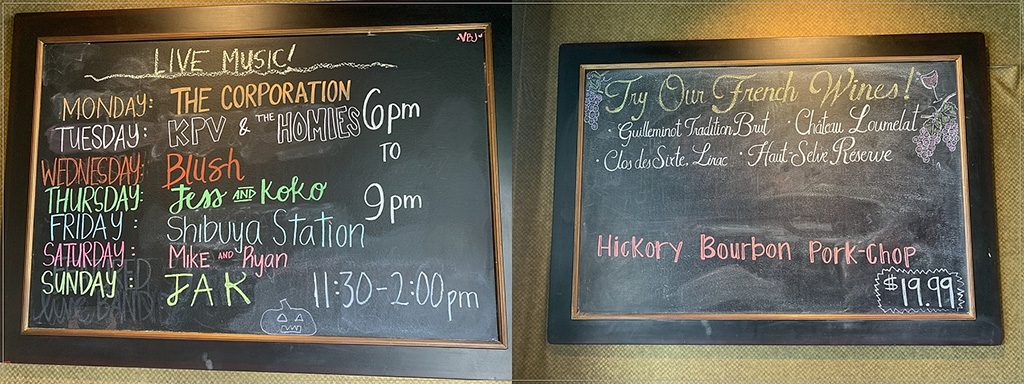 VBJ
LIVE MUSIC!
MONDAY: THE CORPORATION
TUESDAY: KPV & THE HOMIES
WEDNESDAY: Blush
THURSDAY: Jess AND Koko
FRIDAY : Shibuya Station
SATURDAY : Mike AND Ryan
SUNDAY : JAK 11:30-2:00pm
6pm
TO
9pm
Try Our French Wines!
· Guilleminot Tradition Brut · Château Loumelat
· Clos des Sixte, Lirac · Haut Selve Reserve
Hickory Bourbon Pork-Chop
$19.99